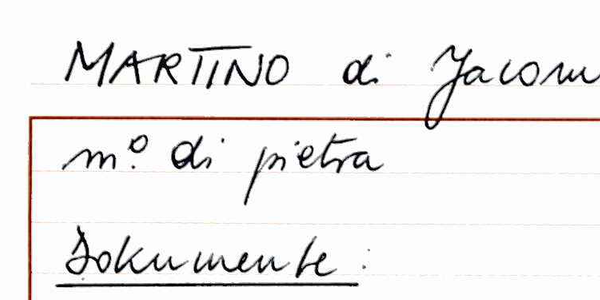 MARTINO di Jacom
mº di pietra
Dokumente: